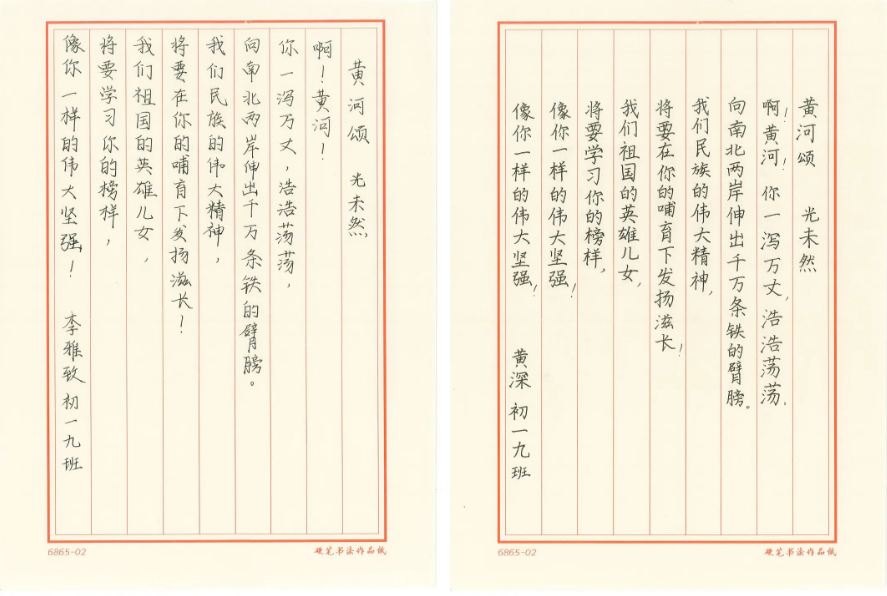 黄河颂 光未然
啊！黄河！
你一泻万丈，浩浩荡荡，
向南北两岸伸出千万条铁的臂膀。
我们民族的伟大精神，
将要在你的哺育下发扬滋长！
我们祖国的英雄儿女，
将要学习你的榜样，
像你一样的伟大坚强！ 李雅致 初一九班
6865-02
硬笔书法作品纸
黄河颂 光未然
啊！黄河！你一泻万丈，浩浩荡荡，
向南北两岸伸出千万条铁的臂膀。
我们民族的伟大精神，
将要在你的哺育下发扬滋长！
我们祖国的英雄儿女，
将要学习你的榜样，
像你一样的伟大坚强！
像你一样的伟大坚强！ 黄深 初一九班
6865-02
硬笔书法作品纸